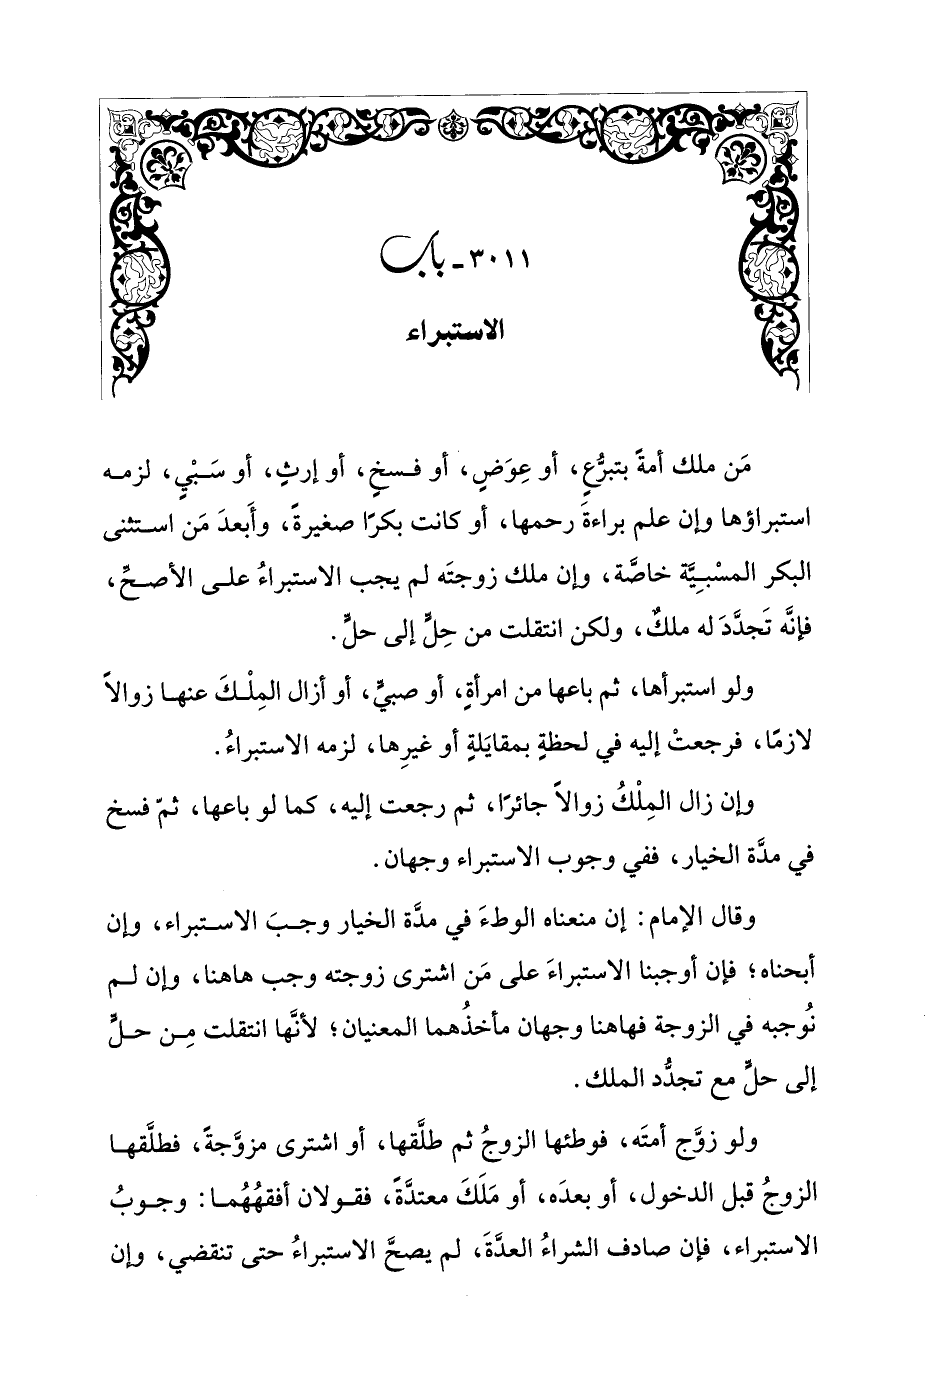 ٣٠١١ - باب
الاستبراء
مَن ملك أمةً بتبرُّعٍ، أو عِوَضٍ، أو فسخٍ، أو إرثٍ، أو سَبْيٍ، لزمه
استبراؤها وإن علم براءةَ رحمها، أو كانت بكرًا صغيرةً، وأَبعدَ مَن استثنى
البكر المسْبِيَّة خاصَّة، وإن ملك زوجتَه لم يجب الاستبراءُ على الأصحِّ،
فإنَّه تَجدَّدَ له ملكٌ، ولكن انتقلت من حِلٍّ إلى حلٍّ.
ولو استبرأها، ثم باعها من امرأةٍ، أو صبيٍّ، أو أزال المِلْكَ عنها زوالاً
لازمًا، فرجعتْ إليه في لحظةٍ بمقايَلةٍ أو غيرِها، لزمه الاستبراءُ.
وإن زال المِلْكُ زوالاً جائزًا، ثم رجعت إليه، كما لو باعها، ثمّ فسخ
في مدَّة الخيار، ففي وجوب الاستبراء وجهان.
وقال الإمام: إن منعناه الوطءَ في مدَّة الخيار وجبَ الاستبراء، وإن
أبحناه؛ فإن أوجبنا الاستبراءَ على مَن اشترى زوجته وجب هاهنا، وإن لم
نُوجبه في الزوجة فهاهنا وجهان مأخذُهما المعنيان؛ لأنَّها انتقلت مِن حلٍّ
إلى حلٍّ مع تجدُّد الملك.
ولو زوَّج أمتَه، فوطئها الزوجُ ثم طلَّقها، أو اشترى مزوَّجةً، فطلَّقها
الزوجُ قبل الدخول، أو بعدَه، أو مَلَكَ معتدَّةً، فقولان أفقهُهُما: وجوبُ
الاستبراء، فإن صادف الشراءُ العدَّةَ، لم يصحَّ الاستبراءُ حتى تنقضي، وإن